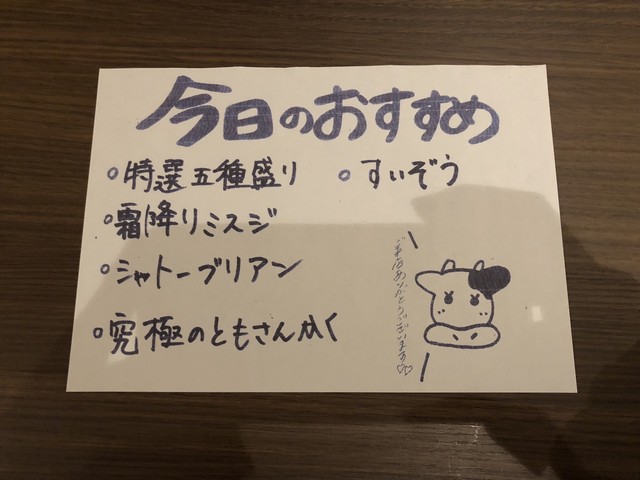 今日のおすすめ
特選五種盛り
すいぞう
霜降りミスジ
シャトーブリアン
究極のともさんかく
ご来店ありがとうございます♡♡